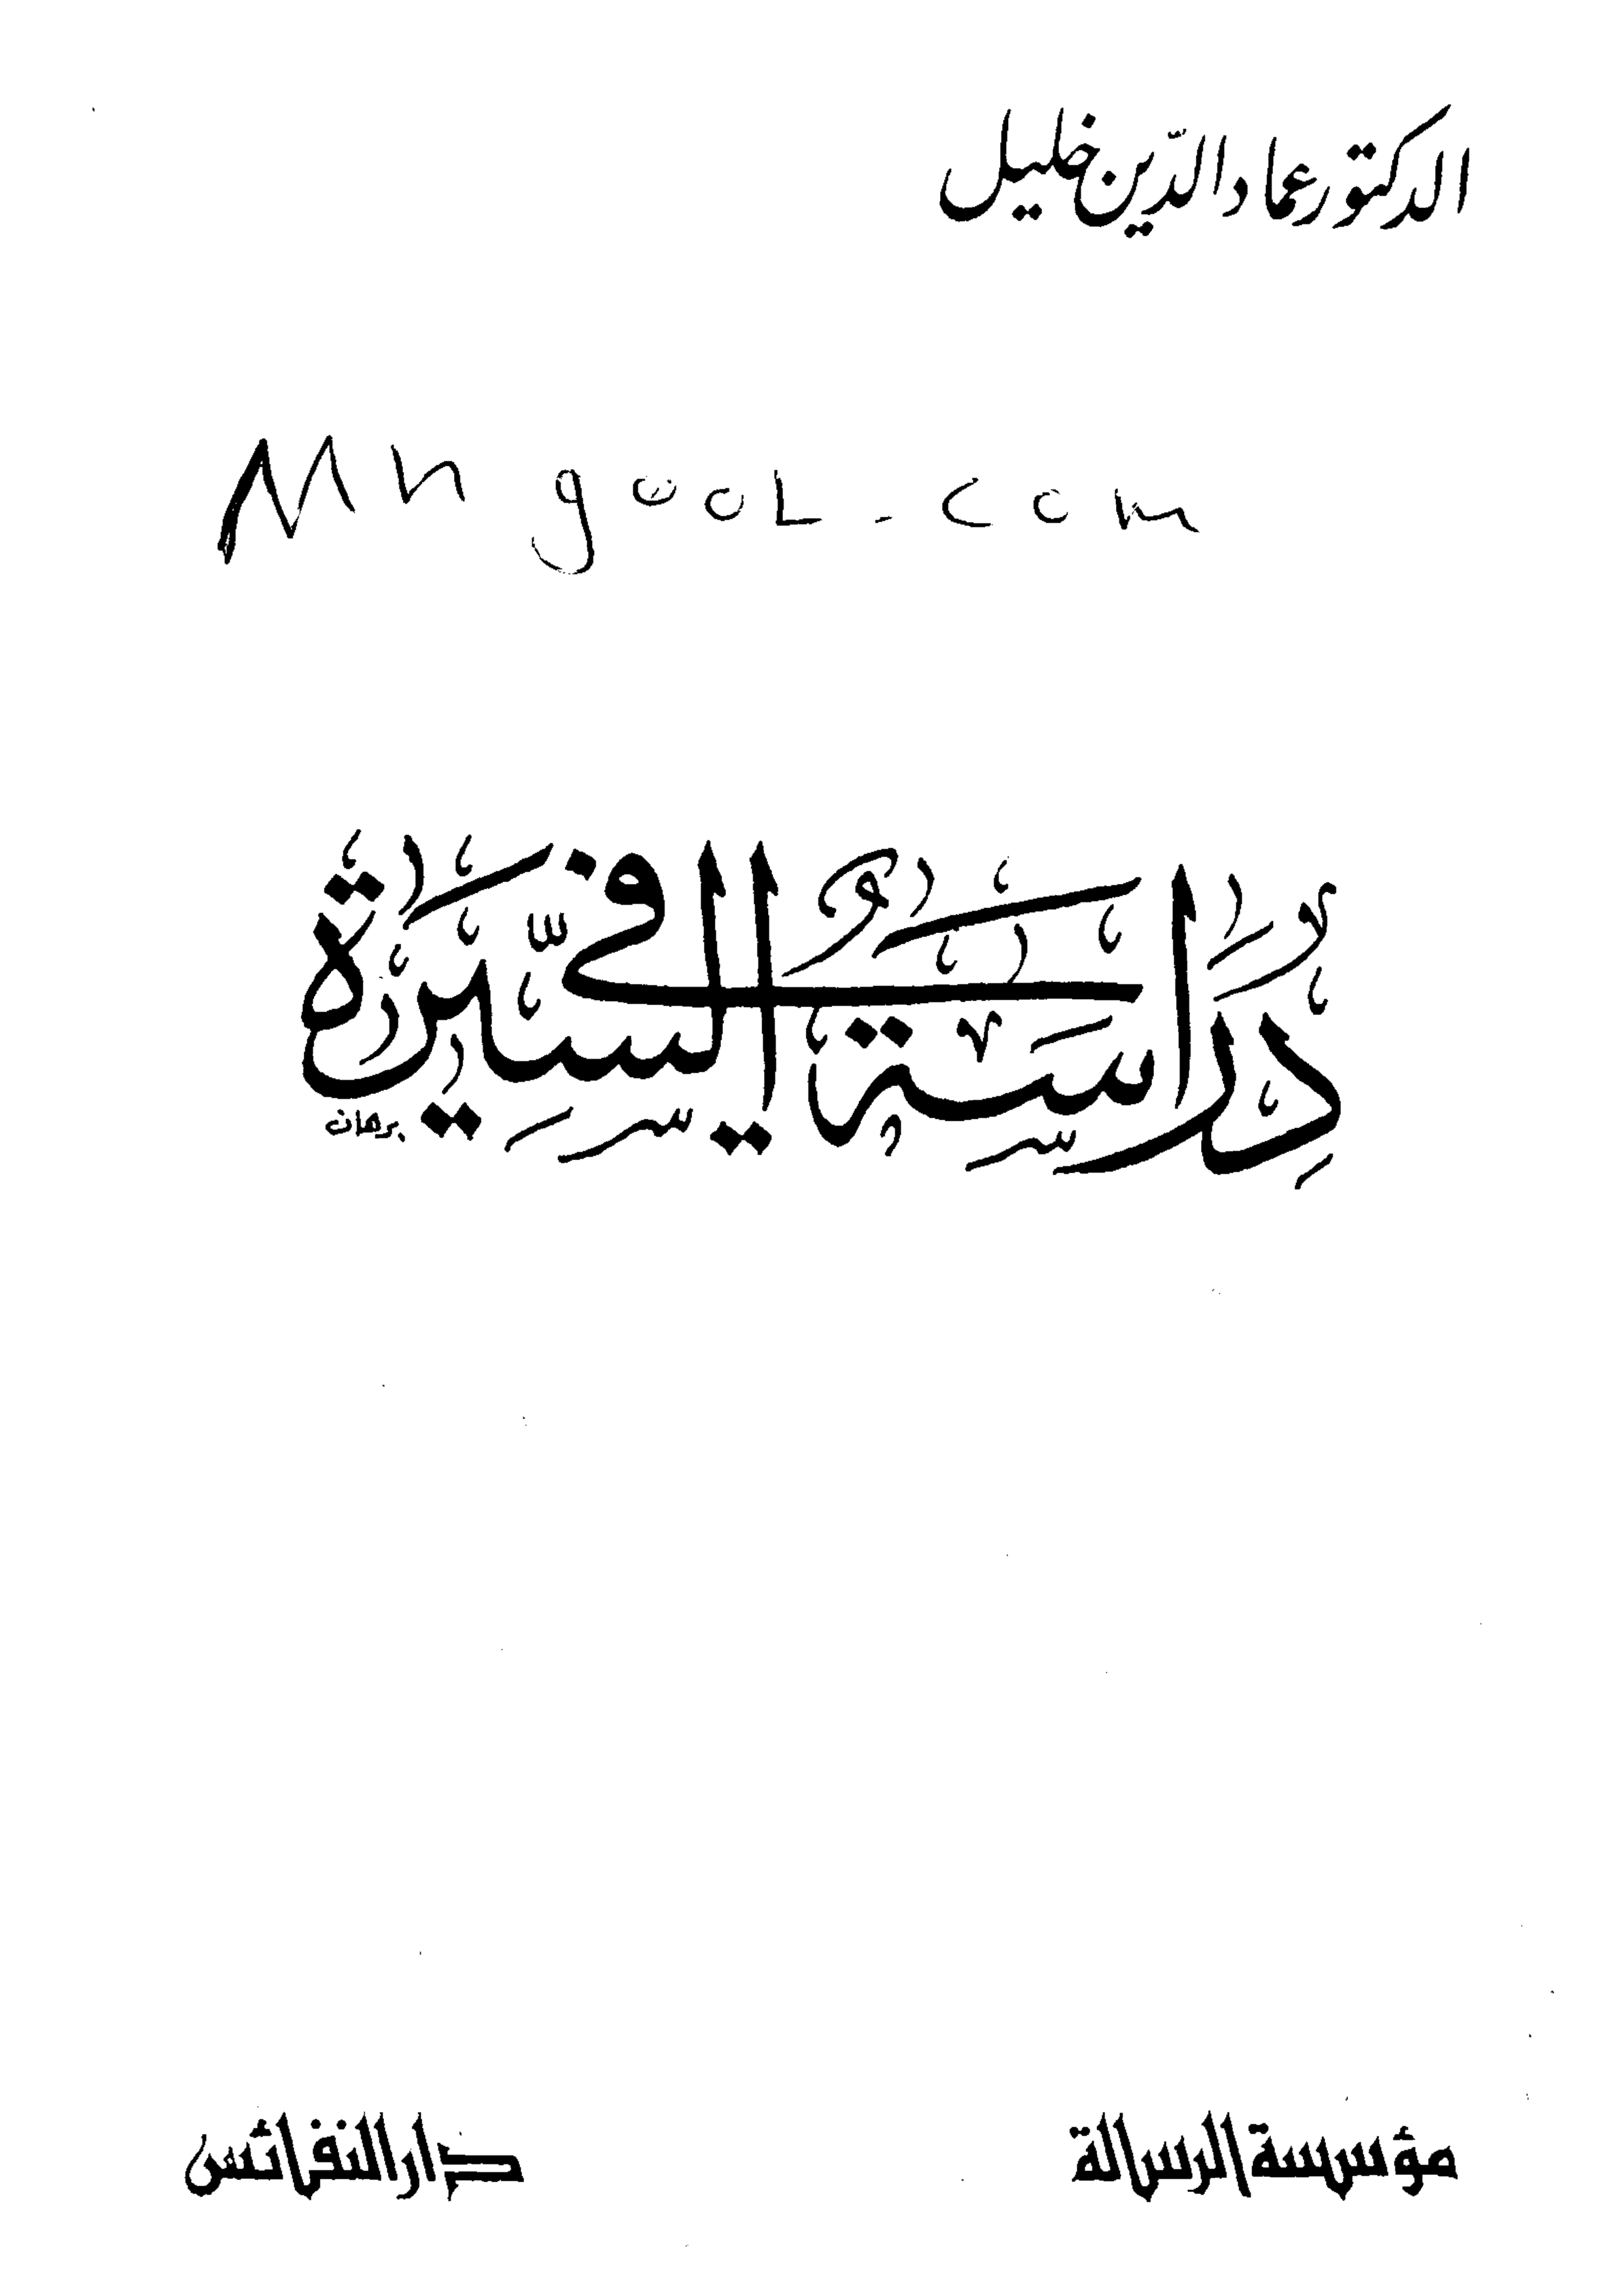 الدكتور عماد الدّين خليل
Mh gooL.com
دِرَاسَة في السِّيرَة
برهان
مؤسسة الرسالة
دار النفائس